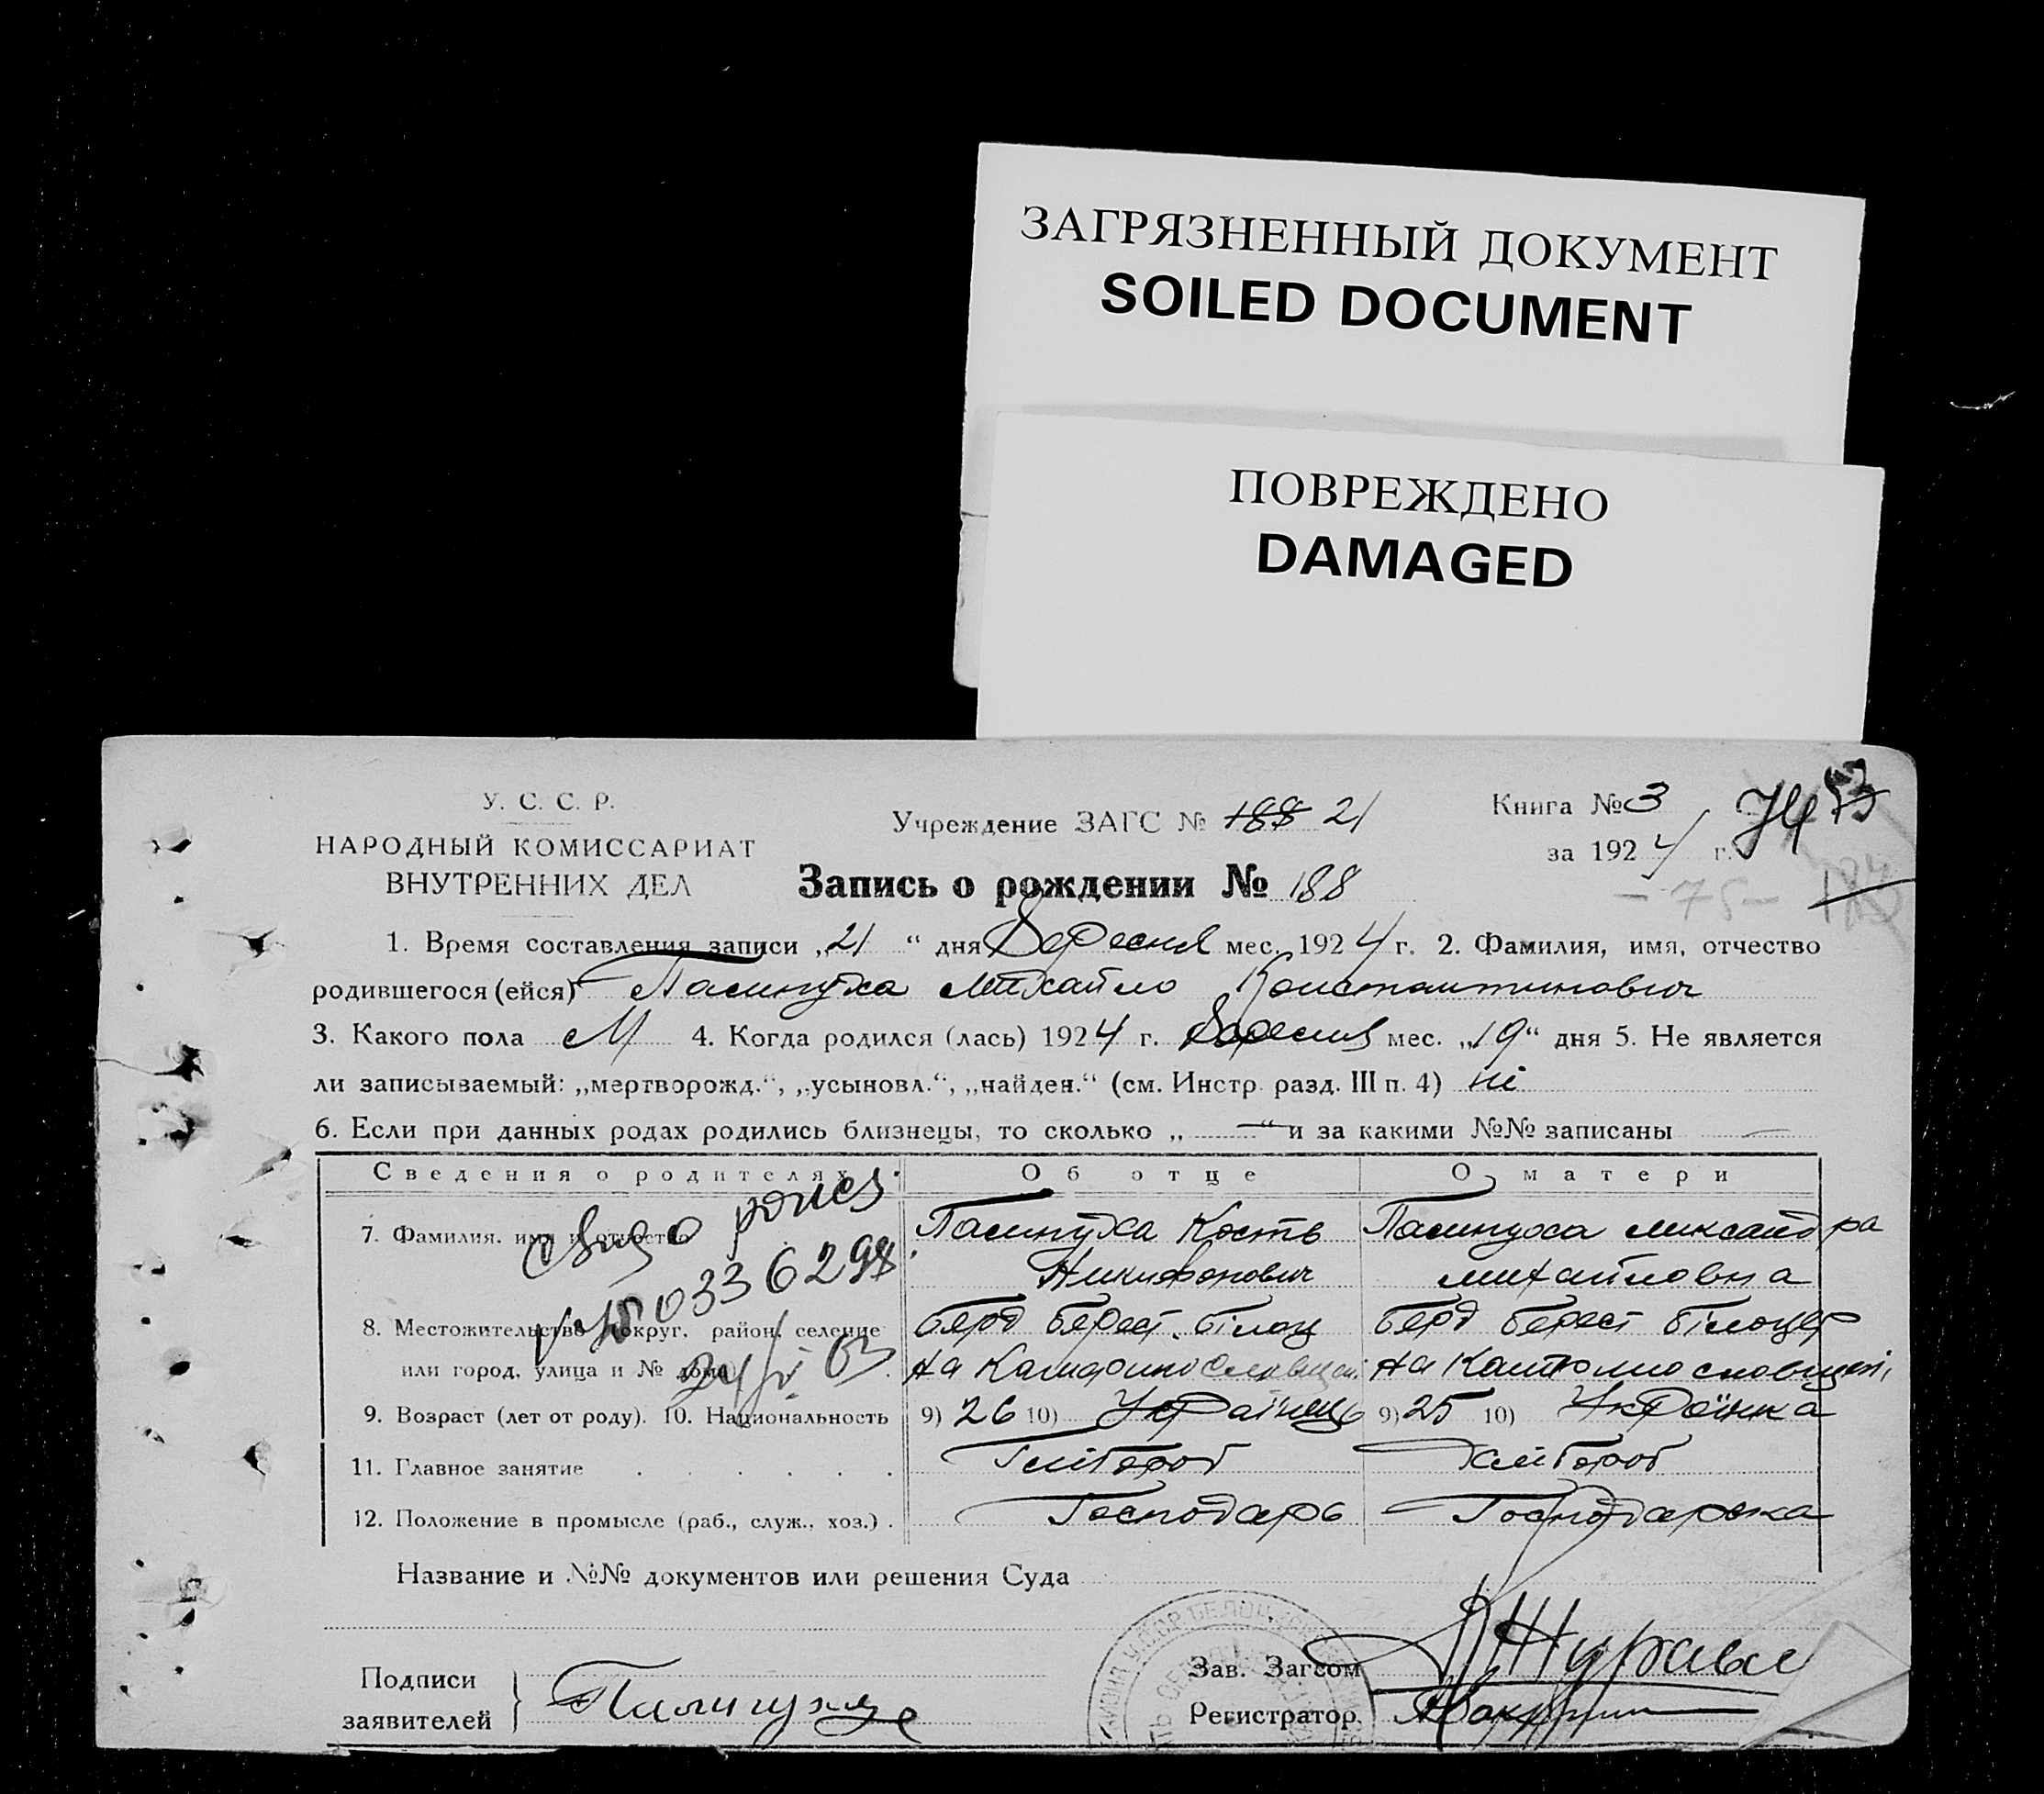 ЗАГРЯЗНЕННЫЙ ДОКУМЕНТ
SOILED DOCUMENT
ПОВРЕЖДЕНО
DAMAGED
У. С. С. Р.
НАРОДНЫЙ КОМИССАРИАТ
ВНУТРЕННИХ ДЕЛ
Учреждение ЗАГС № 188 21
Книга № 3
за 1924 г.
Запись о рождении № 188
- 75 -
1. Время составления записи „21“ дня Вересня мес. 1924 г. 2. Фамилия, имя, отчество
родившегося (ейся) Палинуха Михайло Константинович
3. Какого пола М 4. Когда родился (лась) 1924 г. Вересня мес. „19“ дня 5. Не является
ли записываемый: „мертворожд.“, „усыновл.“, „найден.“ (см. Инстр. разд. III п. 4) ні
6. Если при данных родах родились близнецы, то сколько „ — “ и за какими №№ записаны —
Сведения о родителях Об отце О матери
7. Фамилия, имя и отчество Палинуха Кость Палинуха
Никифорович Михайловна
8. Местожительство: округ, район, селение Берд Берест. Білоц Берд Берест Білоцер
или город, улица и № дома на на
9. Возраст (лет от роду). 10. Национальность 9) 26 10) Українець 9) 25 10) Українка
11. Главное занятие Хлібороб Хлібороб
12. Положение в промысле (раб., служ., хоз.) Господарь Господарька
Название и №№ документов или решения Суда
Подписи
заявителей
Палинуха
Зав. Загсом
Регистратор